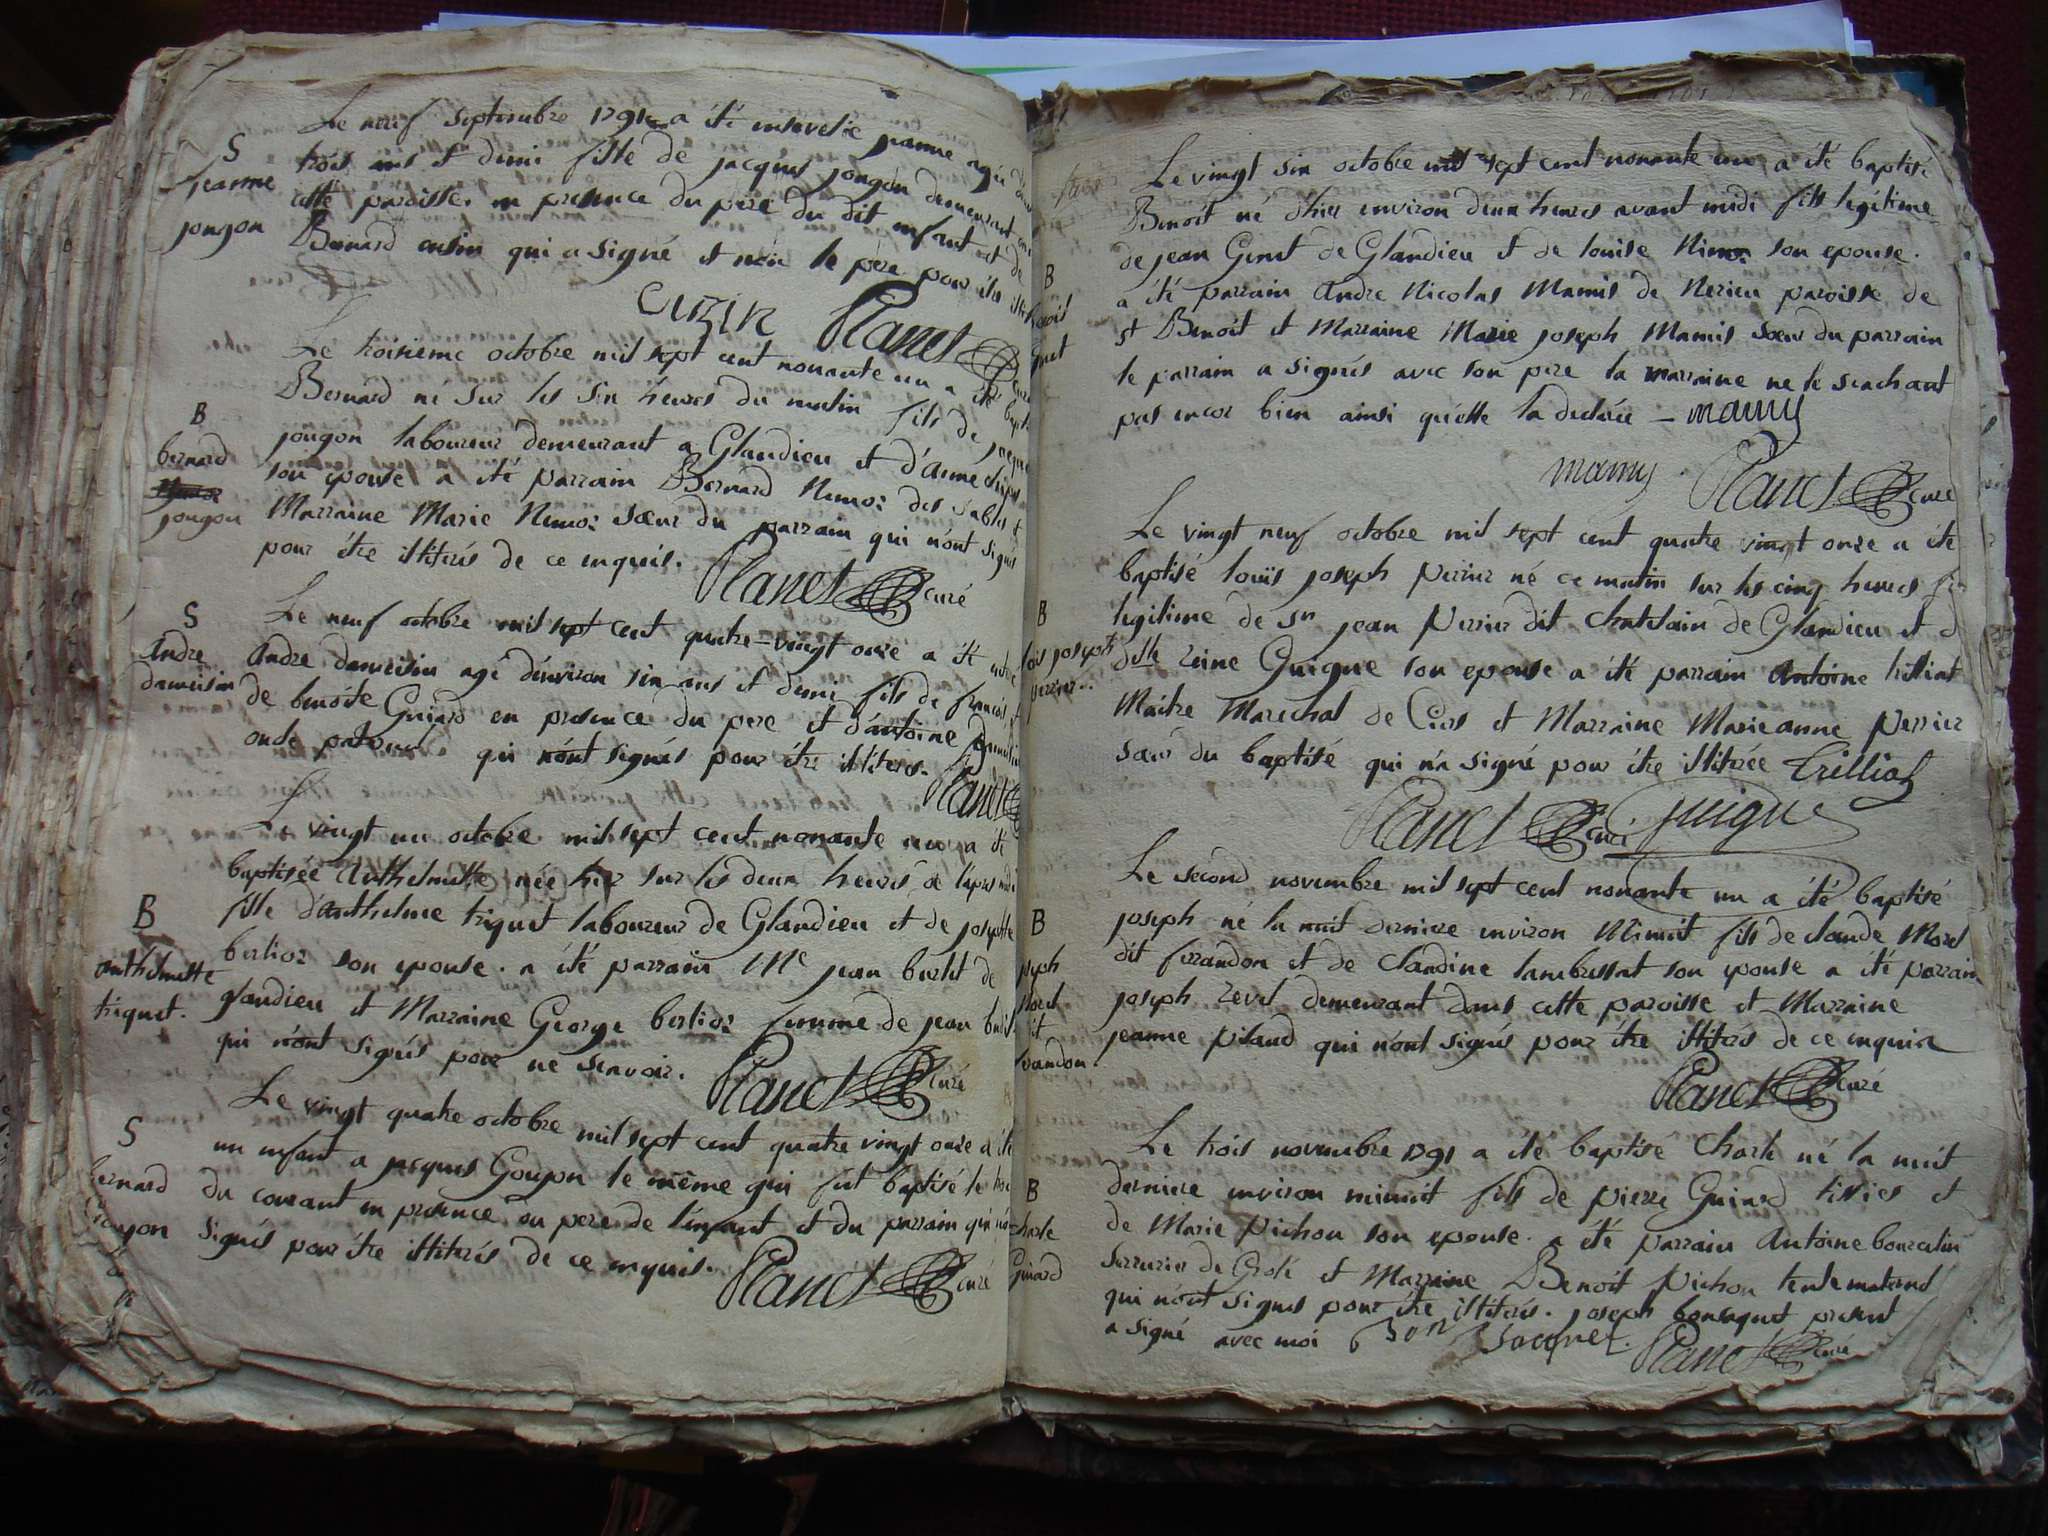 Le neuf septembre 1791 a été ensevelie jeanne agée de
S
jeanne
jougon
trois ans et demi fille de jacques jougon demeurant
cette paroisse. en presence du père du dit enfant et de
Bernard cusin qui a signé et non le père pour être
cuzin Planet curé
Le troisieme octobre mil sept cent nonante un a été
B
bernard
jougon
Bernard né sur les six heures du matin fils de
jougon laboureur demeurant a Glandieu et d'anne
son epouse a été parrain Bernard Nemoz des sables et
Marraine Marie Nemoz sœur du parrain qui n'ont signés
pour être illiterés de ce enquis.
Planet curé
Le neuf octobre mil sept cent quatre-vingt onze a été
S
Andre
dameisin
Andre dameisin agé d'environ six ans et demi fils de francois et
de benoite Guiard en presence du pere et d'antoine
oncle paternel. qui n'ont signés pour être illiterés.
Planet
Le vingt un octobre mil sept cent nonante un a été
baptisée Anthelmette née hier sur les deux heures de l'apres midi
B
anthelmette
triquet.
fille d'anthelme triquet laboureur de Glandieu et de josephte
berlioz son epouse. a été parrain Me jean berlet de
glandieu et Marraine George berlioz femme de jean
qui n'ont signés pour ne scavoir.
Planet curé
Le vingt quatre octobre mil sept cent quatre vingt onze a été
S
bernard
Goujon
un enfant a jacques Goujon le même qui fut baptisé le
du courant en presence du pere de l'enfant et du parrain qui
signés pour être illiterés de ce enquis.
Planet curé
Le vingt six octobre mil sept cent nonante un a été baptisé
B
Benoit né d'hier environ deux heures avant midi fils legitime
de jean Genet de Glandieu et de louise Nimoz son epouse.
a été parrain Andre Nicolas Mamis de Nerieu paroisse de
st Benoit et Marraine Marie joseph Mamis sœur du parrain
le parrain a signés avec son pere la marraine ne le scachant
pas encor bien ainsi qu'elle la declaré – mamy
mamy Planet curé
Le vingt neuf octobre mil sept cent quatre vingt onze a été
baptisé louïs joseph Perrier né ce matin sur les cinq heures
B
joseph
perrier..
legitime de sr jean Perrier dit chatelain de Glandieu et
delle reine Guigue son epouse a été parrain Antoine trilliat
Maitre Marechal de Ciers et Marraine Marieanne Perrier
sœur du baptisé qui n'a signé pour être illiterée trilliat
Planet curé guigue
Le sécond novembre mil sept cent nonante un a été baptisé
B
joseph né la nuit derniere environ Minuit fils de claude Morel
dit ferrandon et de Claudine lambressat son epouse a été parrain
joseph revel demeurant dans cette paroisse et Marraine
jeanne pilaud qui n'ont signés pour être illiterés de ce enquis
Planet curé
Le trois novembre 1791 a été baptisé Charle né la nuit
B
charle
Guiard
derniere environ minuit fils de pierre Guiard tissier et
de Marie Pichon son epouse. a été parrain Antoine bourcelin
serrurier de Grolé et Marraine Benoit pichon tente maternel
qui n'ont signés pour être illiterés. joseph bonsaquet present
a signé avec moi bon saquet. Planet curé